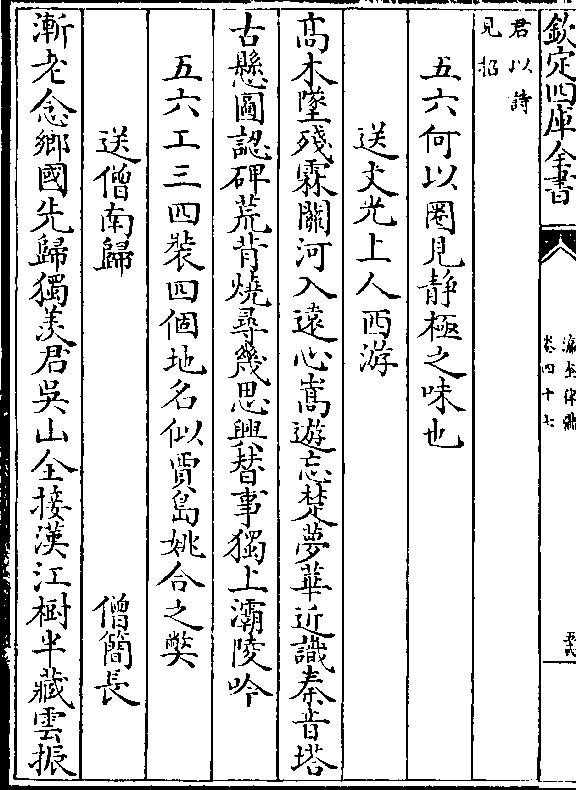 欽定四庫全書
瀛奎律髓
卷四十七
君以詩
見招
五六何以圈見靜極之味也
送文光上人西游
高木墜殘霖關河入遠心嵩遊忘楚夢華近識秦音塔
古懸圖認碑荒背燒尋幾思興替事獨上灞陵吟
五六工三四裝四個地名似賈島姚合之獘
送僧南歸 僧簡長
漸老念鄉國先歸獨羡君吳山全接漢江樹半藏雲振